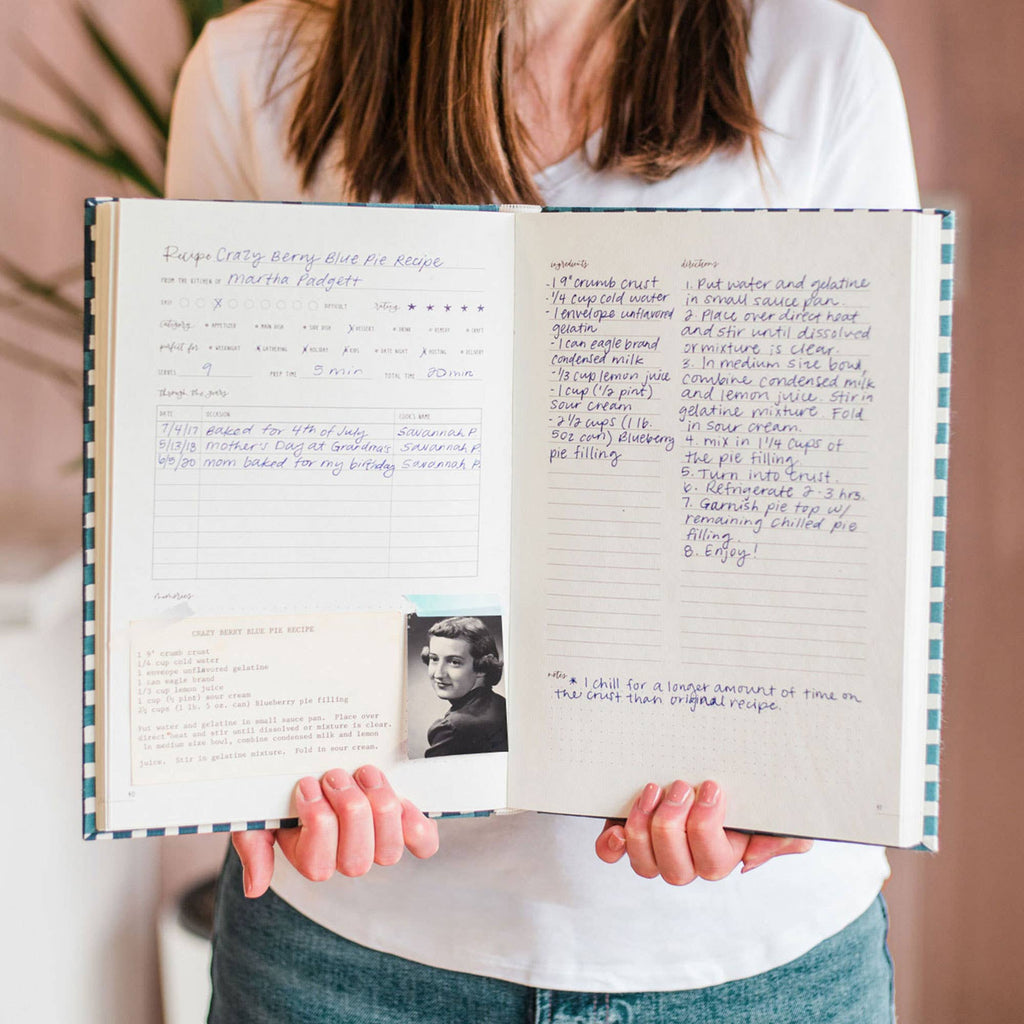 Recipe Crazy Berry Blue Pie Recipe
FROM THE KITCHEN OF Martha Padgett
EASY X DIFFICULT rating ★ ★ ★ ★ ★
category APPETIZER MAIN DISH SIDE DISH X DESSERT DRINK REMEDY CRAFT
perfect for WEEKNIGHT X GATHERING X HOLIDAY X KIDS DATE NIGHT X HOSTING DELIVERY
SERVES 9 PREP TIME 5 min TOTAL TIME 20 min
through the years
DATE OCCASION COOK'S NAME
7/4/17 Baked for 4th of July Savannah P.
5/13/18 mother's Day at Grandma's Savannah P.
mom baked for my birthday Savannah P.
memories
CRAZY BERRY BLUE PIE RECIPE
1 9" crumb crust
1/4 cup cold water
1 enveope unflavored gelatine
1 can eagle brand
1/3 cup lemon juice
1 cup (½ pint) sour cream
2½ cups (1 lb. 5 oz. can) Blueberry pie filling
Put water and gelatine in small sauce pan. Place over
direct heat and stir until dissolved or mixture is clear.
In medium size bowl, combine condensed milk and lemon
juice. Stir in gelatine mixture. Fold in sour cream.
40
ingredients
- 1 9" crumb crust
- 1/4 cup cold water
- 1 envelope unflavored
gelatin
- 1 can eagle brand
condensed milk
- 1/3 cup lemon juice
- 1 cup (1/2 pint)
sour cream
- 2 1/2 cups (1 lb.
5oz can) Blueberry
pie filling
directions
1. Put water and gelatine
in small sauce pan.
2. Place over direct heat
and stir until dissolved
or mixture is clear.
3. In medium size bowl,
combine condensed milk
and lemon juice. Stir in
gelatine mixture. Fold
in sour cream.
4. mix in 1 1/4 cups of
the pie filling.
5. Turn into crust.
6. Refrigerate 2-3 hrs.
7. Garnish pie top w/
remaining chilled pie
filling.
8. Enjoy!
notes * I chill for a longer amount of time on
the crust than original recipe.